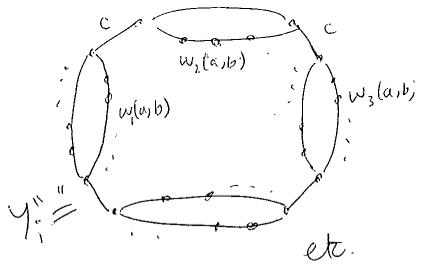 c c
w₂(a,b)
w₁(a,b) w₃(a,b)
Y₁ "="
etc.